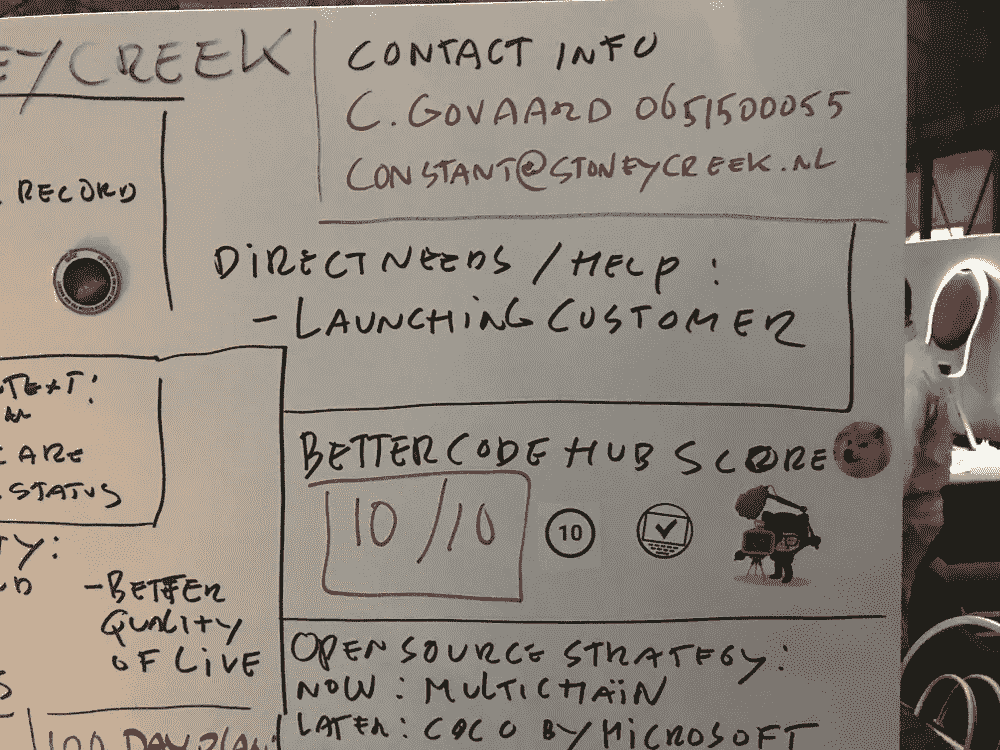 EYCREEK
CONTACT INFO
C. GOVAARD 0651500055
CONSTANT@STONEYCREEK.NL
RECORD
DIRECT NEEDS / HELP :
- LAUNCHING CUSTOMER
TEXT:
CARE
STATUS
BETTER CODE HUB SCORE
10/10
10
TY:
- BETTER
QUALITY
OF LIVE
OPEN SOURCE STRATEGY:
NOW : MULTICHAIN
LATER: COCO BY MICROSOFT
100 DAY PLAN